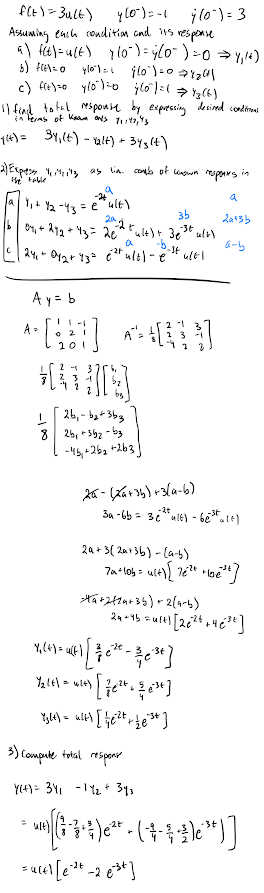 f(t) = 3u(t) y(0⁻) = -1 ẏ(0⁻) = 3
Assuming each condition and its response
a) f(t) = u(t) y(0⁻) = ẏ(0⁻) = 0 ⇒ y₁(t)
b) f(t) = 0 y(0⁻) = 1 ẏ(0⁻) = 0 ⇒ y₂(t)
c) f(t) = 0 y(0⁻) = 0 ẏ(0⁻) = 1 ⇒ y₃(t)
1) find total response by expressing desired conditions
in terms of known ones y₁, y₂, y₃
y(t) = 3y₁(t) - y₂(t) + 3y₃(t)
2) Express y₁, y₂, y₃ as lin. comb of known responses in
the table
a
a y₁ + y₂ - y₃ = e^-2t u(t) a
2a 3b
b 0y₁ + 2y₂ + y₃ = 2e^-2t u(t) + 3e^-3t u(t) 2a+3b
a -b
c 2y₁ + 0y₂ + y₃ = e^-2t u(t) - e^-3t u(t) a-b
A y = b
A = [1 1 -1; 0 2 1; 2 0 1] A⁻¹ = 1/8 [2 -1 3; 2 3 -1; -4 2 2]
1/8 [2 -1 3; 2 3 -1; -4 2 2] [b₁; b₂; b₃]
1/8 [2b₁ - b₂ + 3b₃; 2b₁ + 3b₂ - b₃; -4b₁ + 2b₂ + 2b₃]
2a - (2a+3b) + 3(a-b)
3a - 6b = 3e^-2t u(t) - 6e^-3t u(t)
2a + 3(2a+3b) - (a-b)
7a + 10b = u(t) [7e^-2t + 10e^-3t]
-4a + 2(2a+3b) + 2(a-b)
2a + 4b = u(t) [2e^-2t + 4e^-3t]
y₁(t) = u(t) [3/8 e^-2t - 3/4 e^-3t]
y₂(t) = u(t) [7/8 e^-2t + 5/4 e^-3t]
y₃(t) = u(t) [1/4 e^-2t + 1/2 e^-3t]
3) Compute total response
y(t) = 3y₁ - 1y₂ + 3y₃
= u(t) [(9/8 - 7/8 + 3/4) e^-2t + (-9/4 - 5/4 + 3/2) e^-3t]
= u(t) [e^-2t - 2 e^-3t]